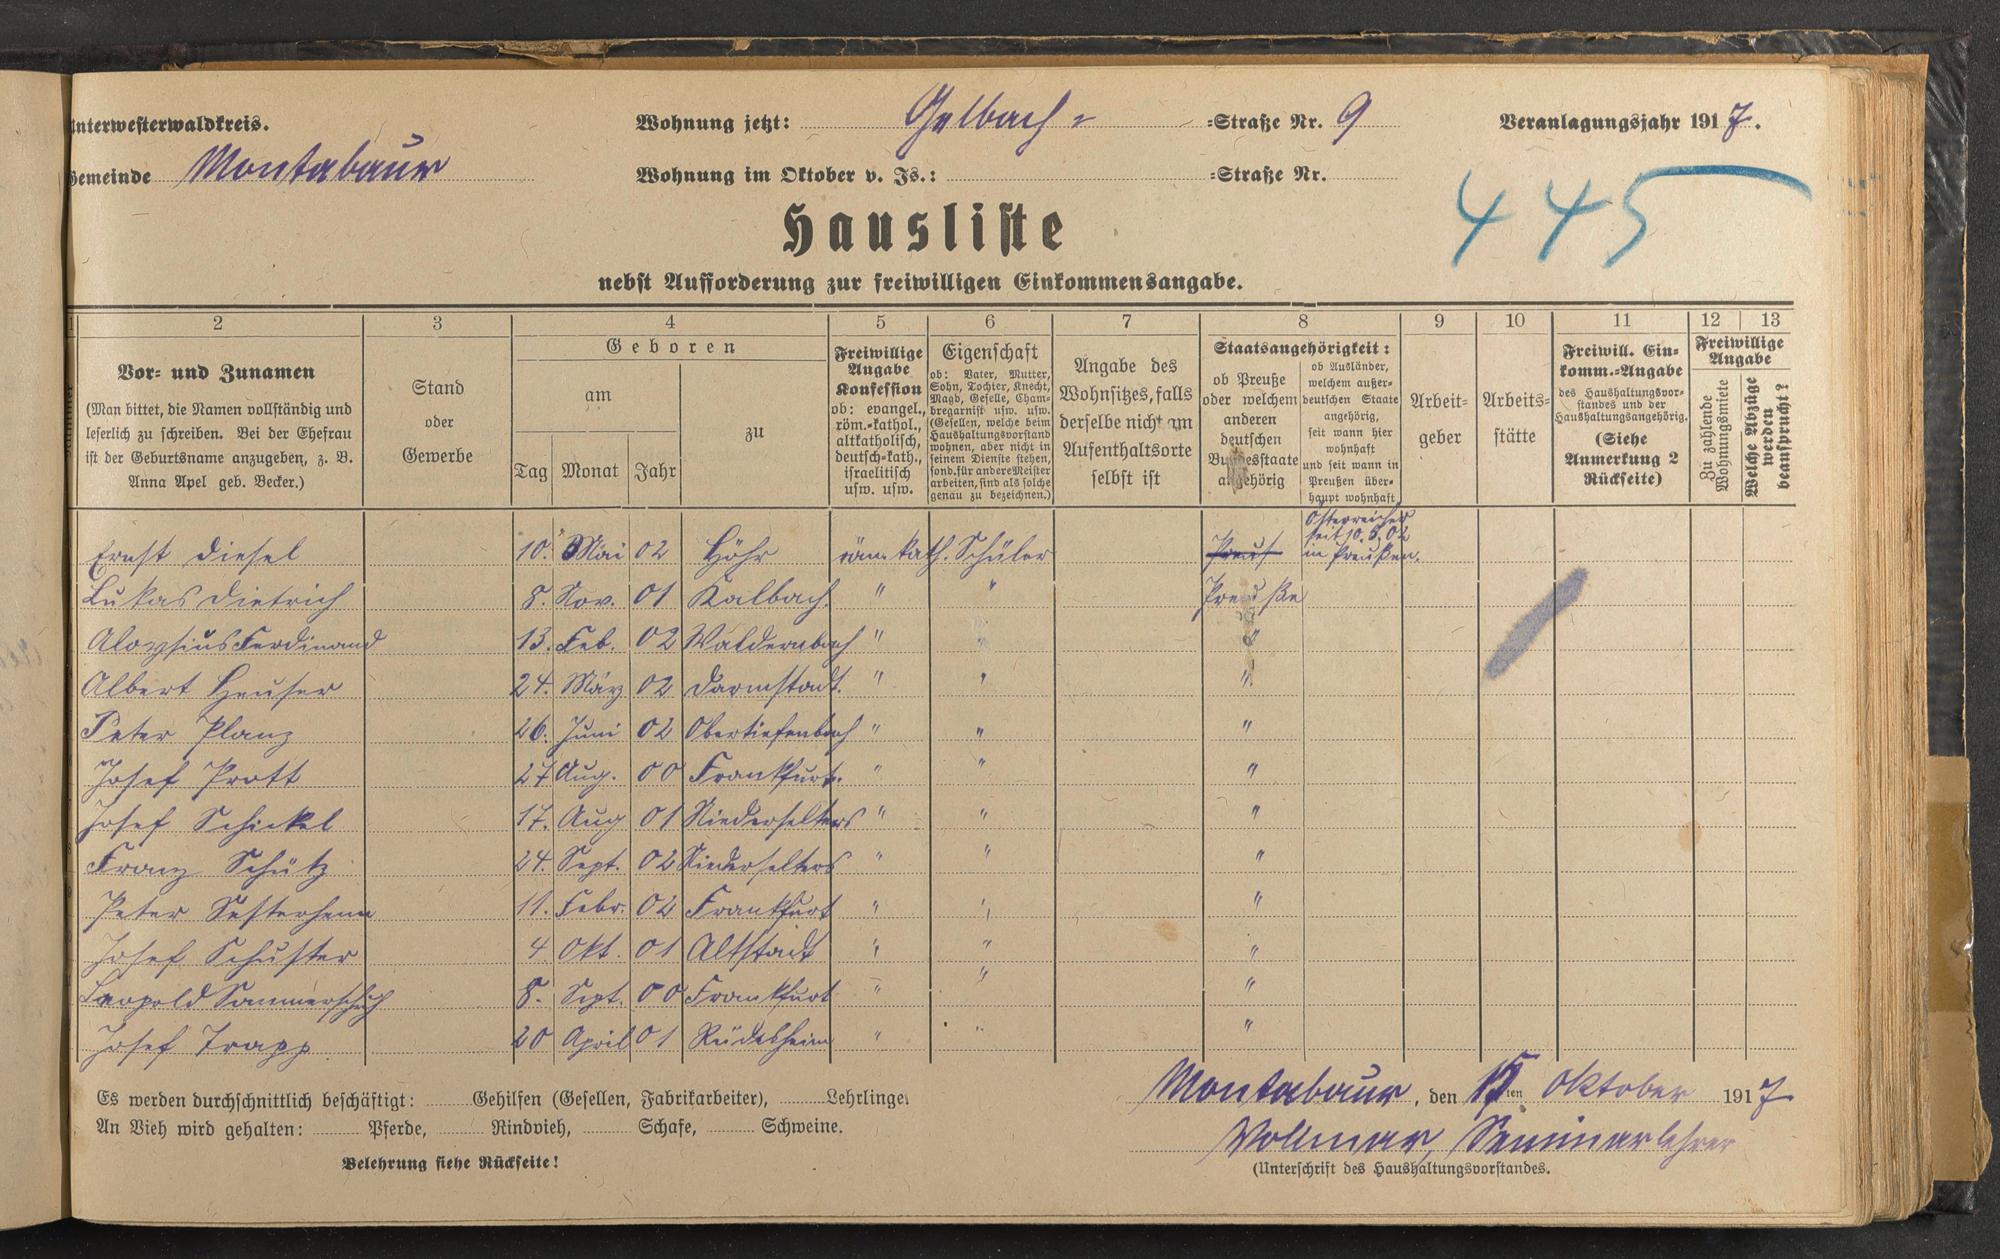 Unterwesterwaldkreis. Wohnung jetzt: Gelbach- =Straße Nr. 9 Veranlagungsjahr 1917.
Gemeinde Montabaur Wohnung im Oktober v. Js.: =Straße Nr.
445
Hausliste
nebst Aufforderung zur freiwilligen Einkommensangabe.
1 2 3 4 5 6 7 8 9 10 11 12 13
Vor- und Zunamen
(Man bittet, die Namen vollständig und
leserlich zu schreiben. Bei der Ehefrau
ist der Geburtsname anzugeben, z. B.
Anna Apel geb. Becker.)
Stand
oder
Gewerbe
Geboren
am
Tag Monat Jahr
zu
Freiwillige
Angabe
Konfession
ob: evangel.,
röm.-kathol.,
altkatholisch,
deutsch-kath.,
israelitisch
usw. usw.
Eigenschaft
ob: Vater, Mutter,
Sohn, Tochter, Knecht,
Magd, Geselle, Cham-
bregarnist usw. usw.
(Gesellen, welche beim
Haushaltungsvorstand
wohnen, aber nicht in
seinem Dienste stehen,
sond. für andere Meister
arbeiten, sind als solche
genau zu bezeichnen.)
Angabe des
Wohnsitzes, falls
derselbe nicht am
Aufenthaltsorte
selbst ist
Staatsangehörigkeit:
ob Preuße
oder welchem
anderen
deutschen
Bundesstaate
angehörig
ob Ausländer,
welchem außer-
deutschen Staate
angehörig,
seit wann hier
wohnhaft
und seit wann in
Preußen über-
haupt wohnhaft
Arbeit-
geber
Arbeits-
stätte
Freiwill. Ein-
komm.-Angabe
des Haushaltungsvor-
standes und der
Haushaltungsangehörig.
(Siehe
Anmerkung 2
Rückseite)
Freiwillige
Angabe
Zu zahlende
Wohnungsmiete
Welche Abzüge
werden
beansprucht?
Ernst Diesel 10. Mai 02 Höhr röm. kath. Schüler Preuß Österreicher seit 10.5.02 in Preußen.
Lukas Dietrich 8. Nov. 01 Kalbach. " " Preuße
Aloysius Ferdinand 13. Feb. 02 Waldernbach " " "
Albert Heuser 24. März 02 Darmstadt. " " "
Peter Planz 26. Juni 02 Obertiefenbach " " "
Josef Prott 27 Aug. 00 Frankfurt. " " "
Josef Schickel 17. Aug 01 Niederselters " " "
Franz Schütz 24. Sept. 02 Niederselters " " "
Peter Sesterhenn 11. Febr. 02 Frankfurt " " "
Josef Schuster 4 Okt. 01 Altstadt " " "
Leopold Sommerschuh 8. Sept. 00 Frankfurt " " "
Josef Trapp 20 April 01 Rüdesheim " " "
Es werden durchschnittlich beschäftigt: Gehilfen (Gesellen, Fabrikarbeiter), Lehrlinge.
An Vieh wird gehalten: Pferde, Rindvieh, Schafe, Schweine.
Belehrung siehe Rückseite!
Montabaur, den 15ten Oktober 1917
Vollmar, Seminarlehrer
(Unterschrift des Haushaltungsvorstandes.